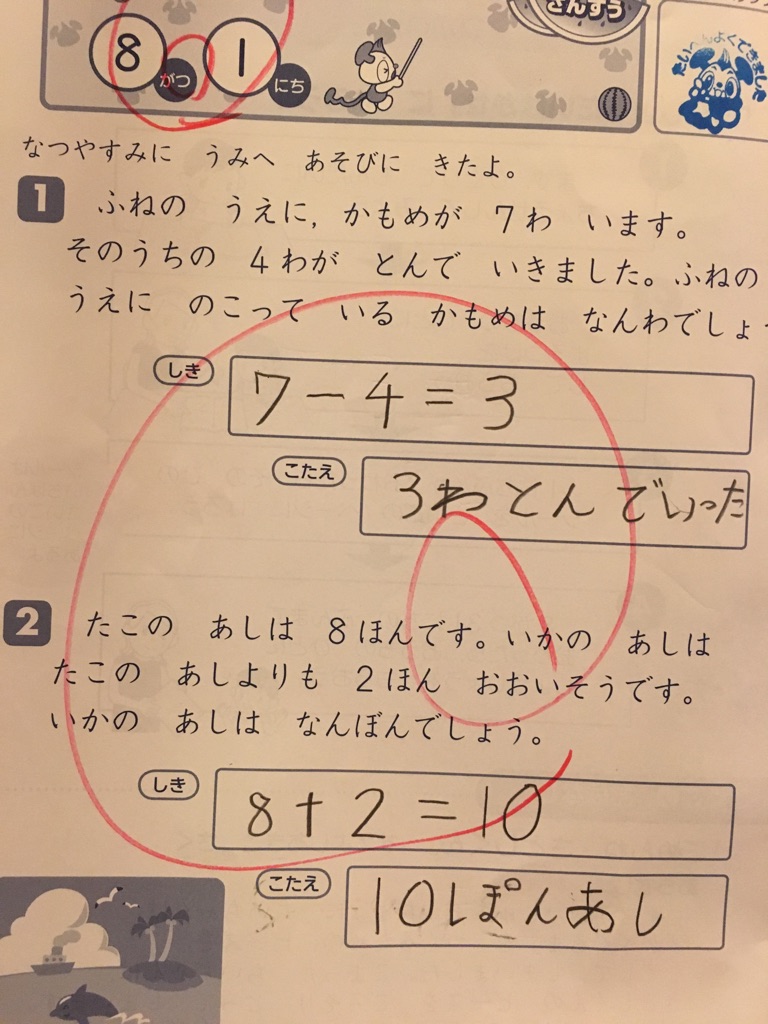 さんすう
8 がつ 1 にち
たいへんよくできました
なつやすみに うみへ あそびに きたよ。
1 ふねの うえに，かもめが 7わ います。
そのうちの 4わが とんで いきました。ふねの
うえに のこって いる かもめは なんわでしょ
しき 7－4＝3
こたえ 3わとんでいった
2 たこの あしは 8ほんです。いかの あしは
たこの あしよりも 2ほん おおいそうです。
いかの あしは なんぼんでしょう。
しき 8＋2＝10
こたえ 10ぽんあし